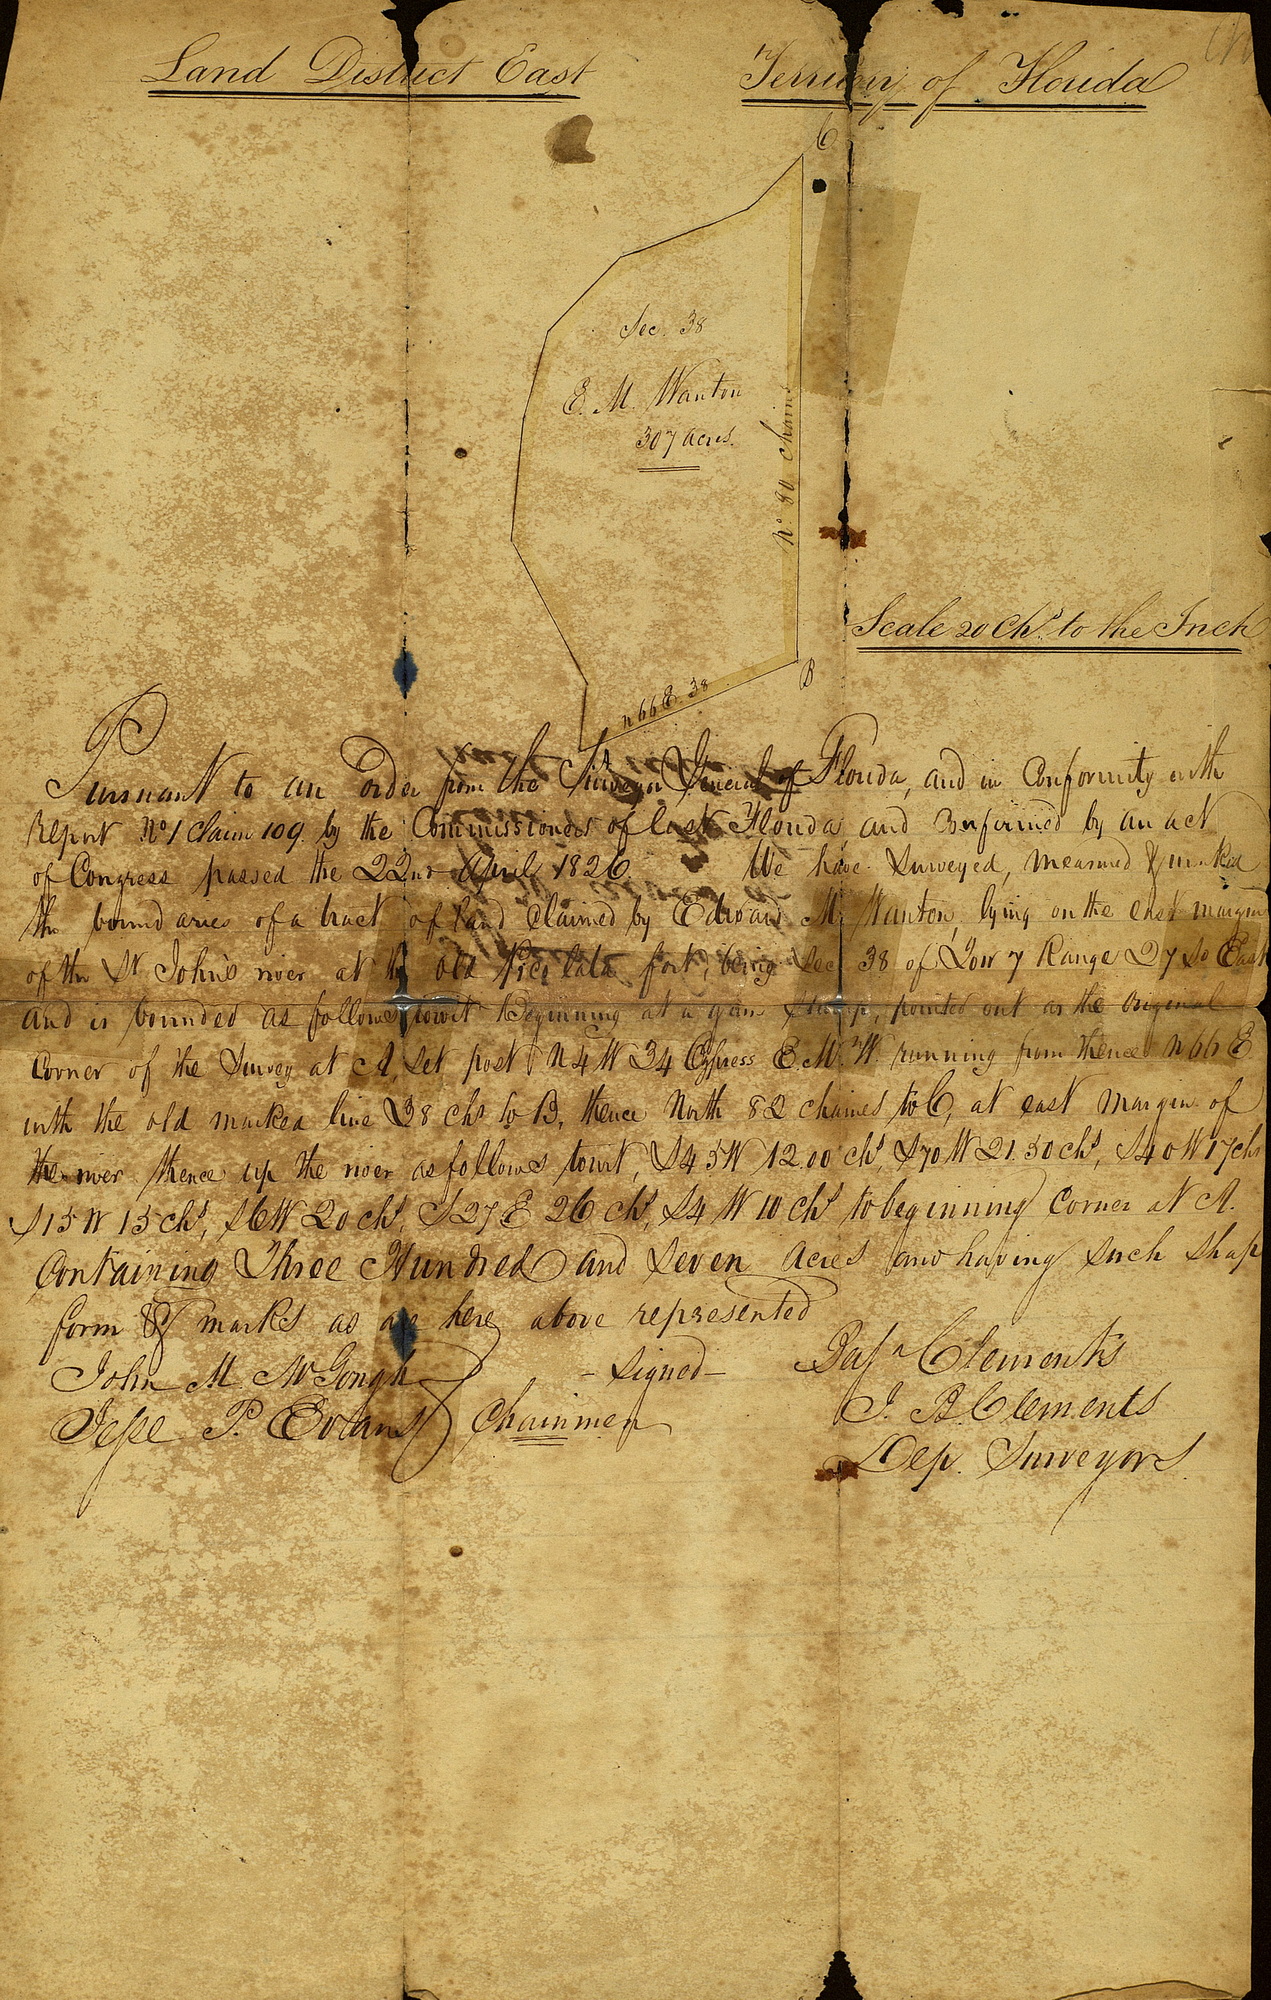 Land District East Territory of Florida
C
Sec. 38
E. M. Wanton
307 Acres.
No 80 Chains
Scale 20 Chs. to the Inch
B
N66E. 38
Pursuant to an order from the Surveyor General of Florida, and in Conformity with
Report No 1 Claim 109. by the Commissioners of East Florida, and Confirmed by an act
of Congress passed the 22nd April 1826. We have Surveyed, measured & marked
the boundaries of a tract of land Claimed by Edward M. Wanton, lying on the east margin
of the St John's river at the old Picolata fort, being Sec 38 of Tow 7 Range 27 So East
and is bounded as follows towit Beginning at a gum Stump, pointed out as the original
Corner of the Survey at A, Set post N4W 34 Cypress E. M. W. running from thence N66E
with the old marked line 38 chs to B, thence North 82 chaines to C, at east margin of
the river thence up the river as follows towit, S45W 12.00 chs, S70W 21.50 chs, S40W 17 chs
S15W 15 chs, S6W 20 chs, S27E 26 chs, S4W 10 chs to beginning Corner at A.
Containing Three Hundred and Seven Acres and having Such Shap
form & marks as are here above represented
John M. McGough - Signed - Benj Clements
Jesse P. Evans Chainmen J. B. Clements
Dep. Surveyors